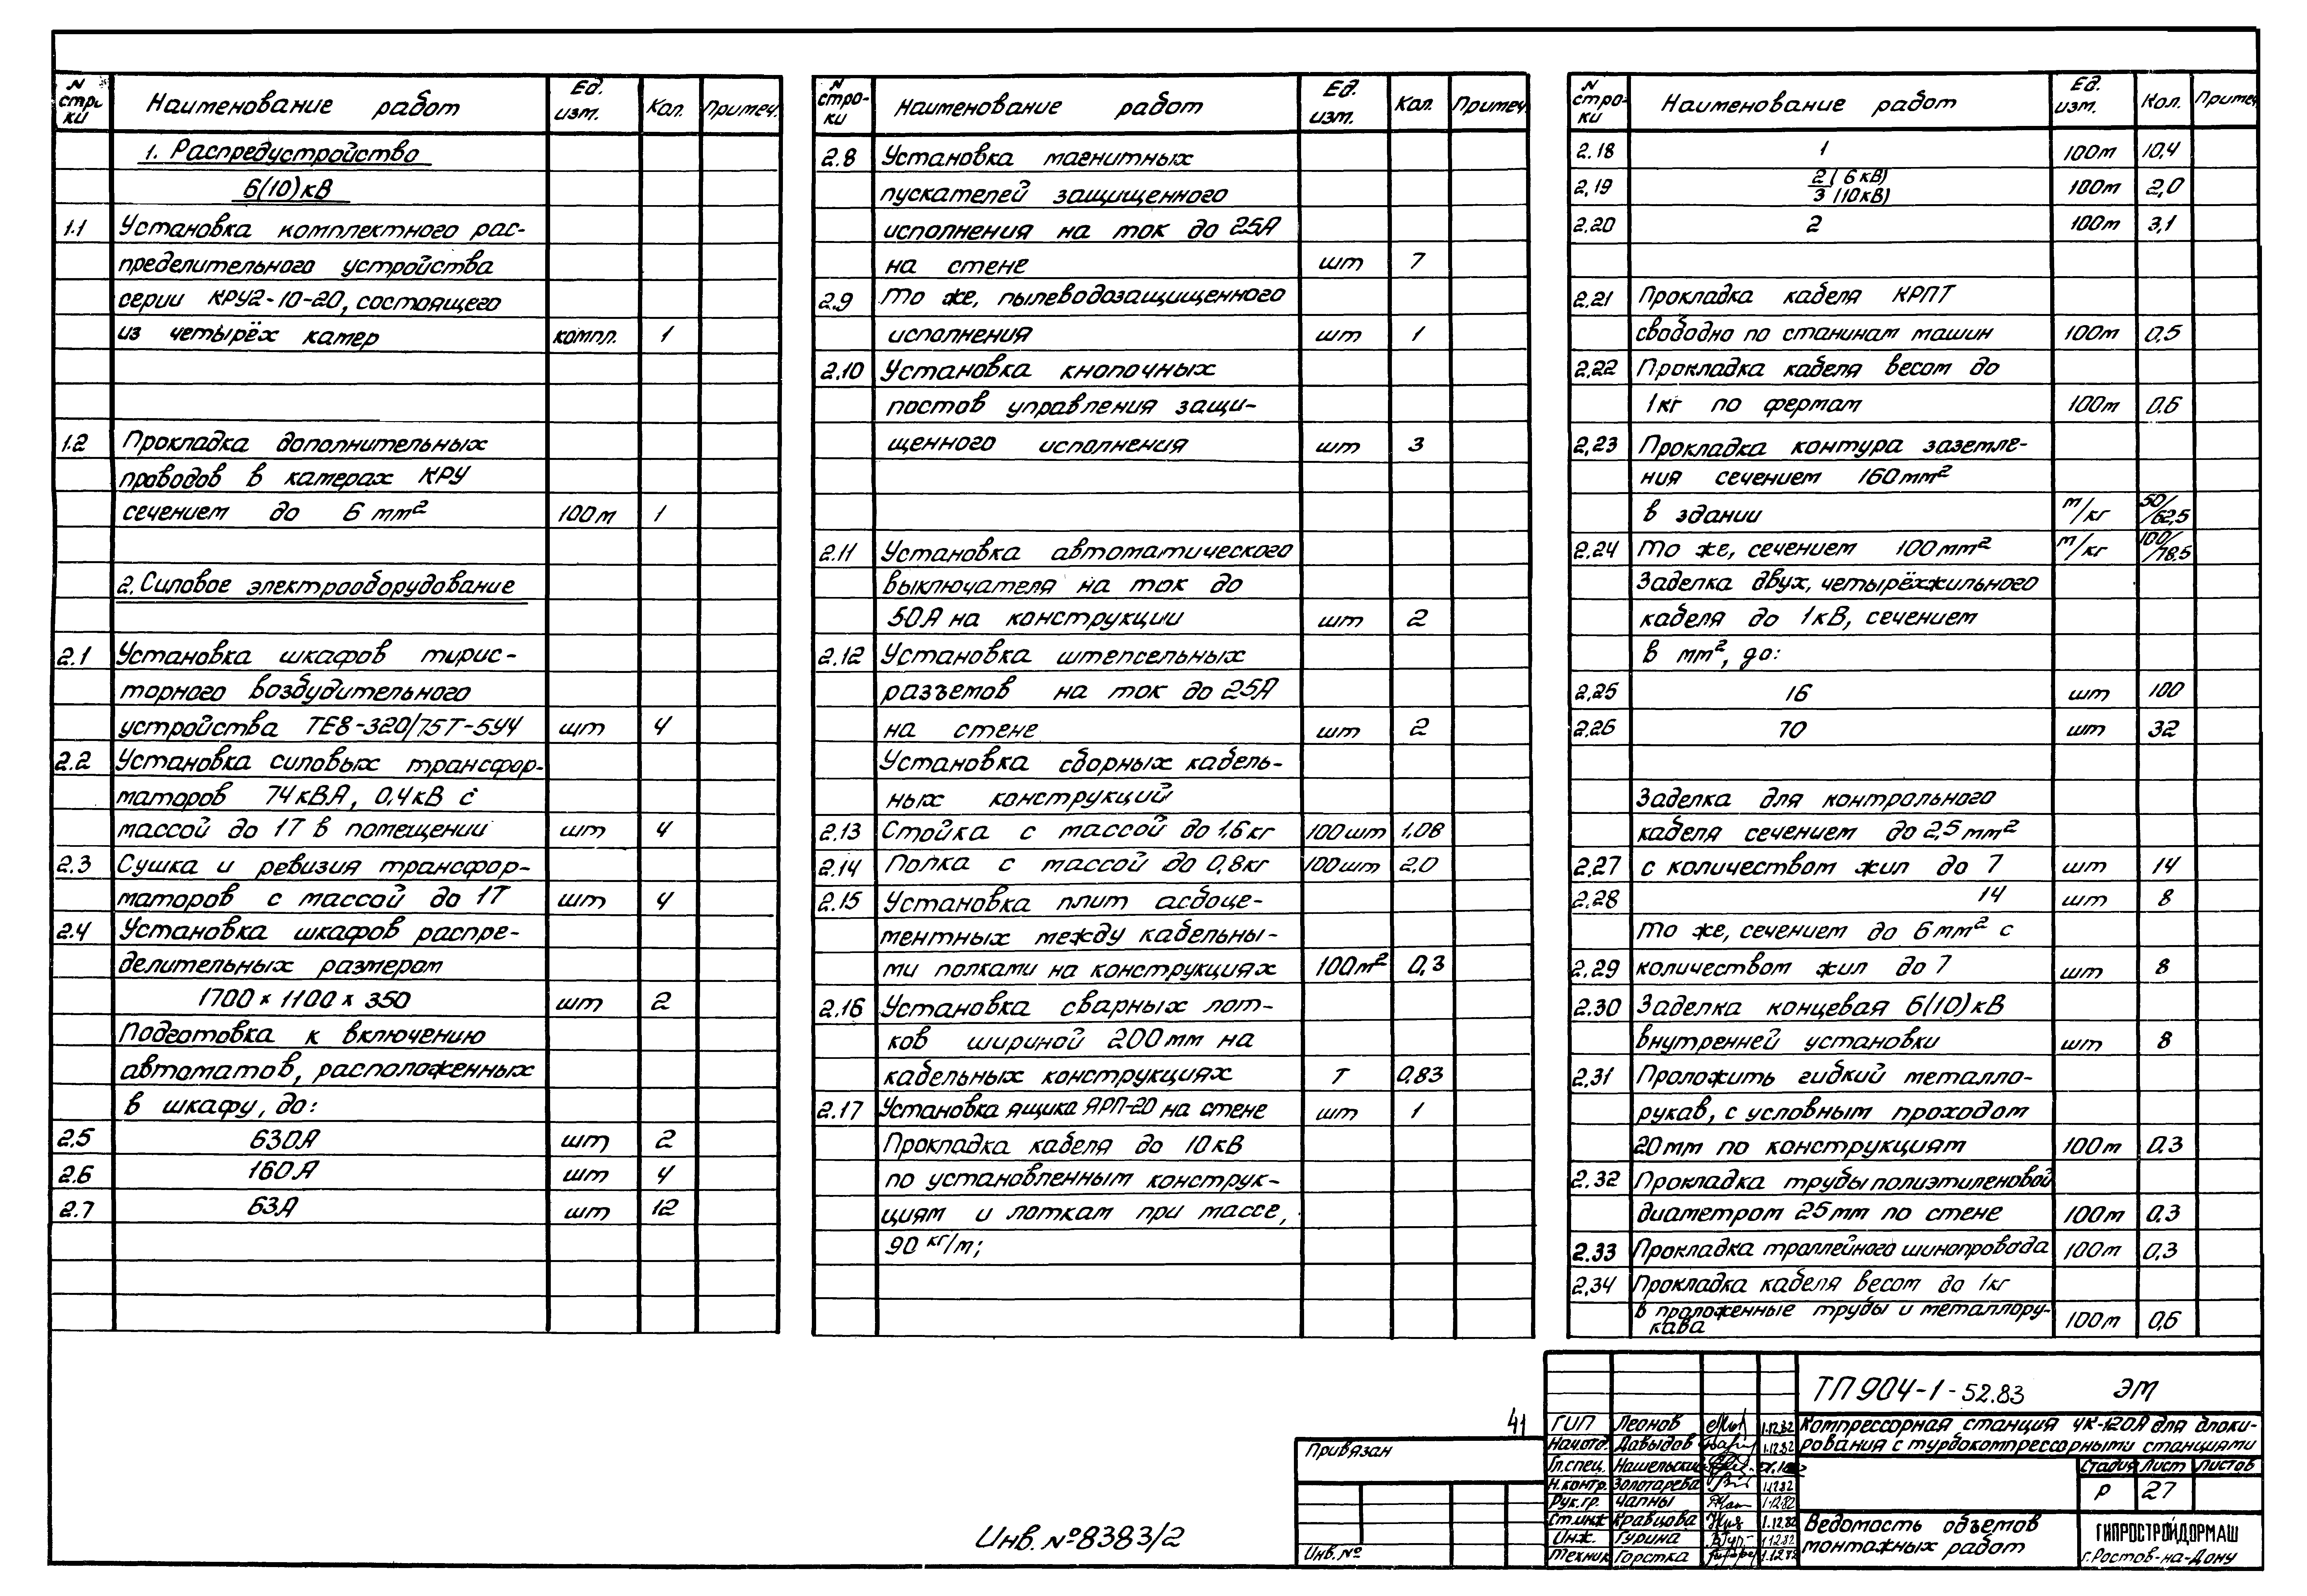 N стр. ки Наименование работ Ед. изм. Кол. Примеч.
1. Распредустройство
6(10)кВ
1.1 Установка комплектного рас-
пределительного устройства
серии КРУ2-10-20, состоящего
из четырёх камер компл. 1
1.2 Прокладка дополнительных
проводов в камерах КРУ
сечением до 6 мм² 100м 1
2. Силовое электрооборудование
2.1 Установка шкафов тирис-
торного возбудительного
устройства ТЕ8-320/75Т-5У4 шт 4
2.2 Установка силовых трансфор-
маторов 74кВА, 0,4кВ с
массой до 1Т в помещении шт 4
2.3 Сушка и ревизия трансфор-
маторов с массой до 1Т шт 4
2.4 Установка шкафов распре-
делительных размером
1700 х 1100 х 350 шт 2
Подготовка к включению
автоматов, расположенных
в шкафу, до:
2.5 630А шт 2
2.6 160А шт 4
2.7 63А шт 12
N стро- ки Наименование работ Ед. изм. Кол. Примеч.
2.8 Установка магнитных
пускателей защищенного
исполнения на ток до 25А
на стене шт 7
2.9 То же, пылеводозащищенного
исполнения шт 1
2.10 Установка кнопочных
постов управления защи-
щенного исполнения шт 3
2.11 Установка автоматического
выключателя на ток до
50А на конструкции шт 2
2.12 Установка штепсельных
разъемов на ток до 25А
на стене шт 2
Установка сборных кабель-
ных конструкций
2.13 Стойка с массой до 1.6кг 100шт 1.08
2.14 Полка с массой до 0,8кг 100шт 2.0
2.15 Установка плит асбоце-
ментных между кабельны-
ми полками на конструкциях 100м² 0,3
2.16 Установка сварных лот-
ков шириной 200мм на
кабельных конструкциях Т 0.83
2.17 Установка ящика ЯРП-20 на стене шт 1
Прокладка кабеля до 10кВ
по установленным конструк-
циям и лоткам при массе,
90 кг/м;
N стро- ки Наименование работ Ед. изм. Кол. Примеч
2.18 1 100м 10,4
2,19 2(6кВ)/3(10кВ) 100м 2,0
2.20 2 100м 3,1
2.21 Прокладка кабеля КРПТ
свободно по станинам машин 100м 0,5
2.22 Прокладка кабеля весом до
1кг по фермам 100м 0.6
2,23 Прокладка контура заземле-
ния сечением 160мм²
в здании м/кг 50/62,5
2.24 То же, сечением 100мм² м/кг 100/78.5
Заделка двух, четырёхжильного
кабеля до 1кВ, сечением
в мм², до:
2,25 16 шт 100
2.26 70 шт 32
Заделка для контрольного
кабеля сечением до 2,5мм²
2.27 с количеством жил до 7 шт 14
2.28 14 шт 8
То же, сечением до 6мм² с
2.29 количеством жил до 7 шт 8
2.30 Заделка концевая 6(10)кВ
внутренней установки шт 8
2.31 Проложить гибкий металло-
рукав, с условным проходом
20мм по конструкциям 100м 0.3
2.32 Прокладка трубы полиэтиленовой
диаметром 25мм по стене 100м 0.3
2.33 Прокладка троллейного шинопровода 100м 0,3
2.34 Прокладка кабеля весом до 1кг
в проложенные трубы и металлору-
кава 100м 0,6
ТП904-1-52.83 ЭМ
41
ГИП Леонов 1.12.82
Нач.отд. Давыдов 1.12.82
Гл.спец. Нашельский
Н.контр. Золотарева 1.12.82
Рук.гр. Чапны 1.12.82
Ст.инж Кравцова 1.12.82
Инж. Гурина 1.12.82
Техник Горстка 1.12.82
Компрессорная станция 4К-120А для блоки-
рования с турбокомпрессорными станциями
Стадия Лист Листов
Р 27
Ведомость объемов
монтажных работ
ГИПРОСТРОЙДОРМАШ
г.Ростов-на-Дону
Привязан
Инв.№
Инв.№8383/2